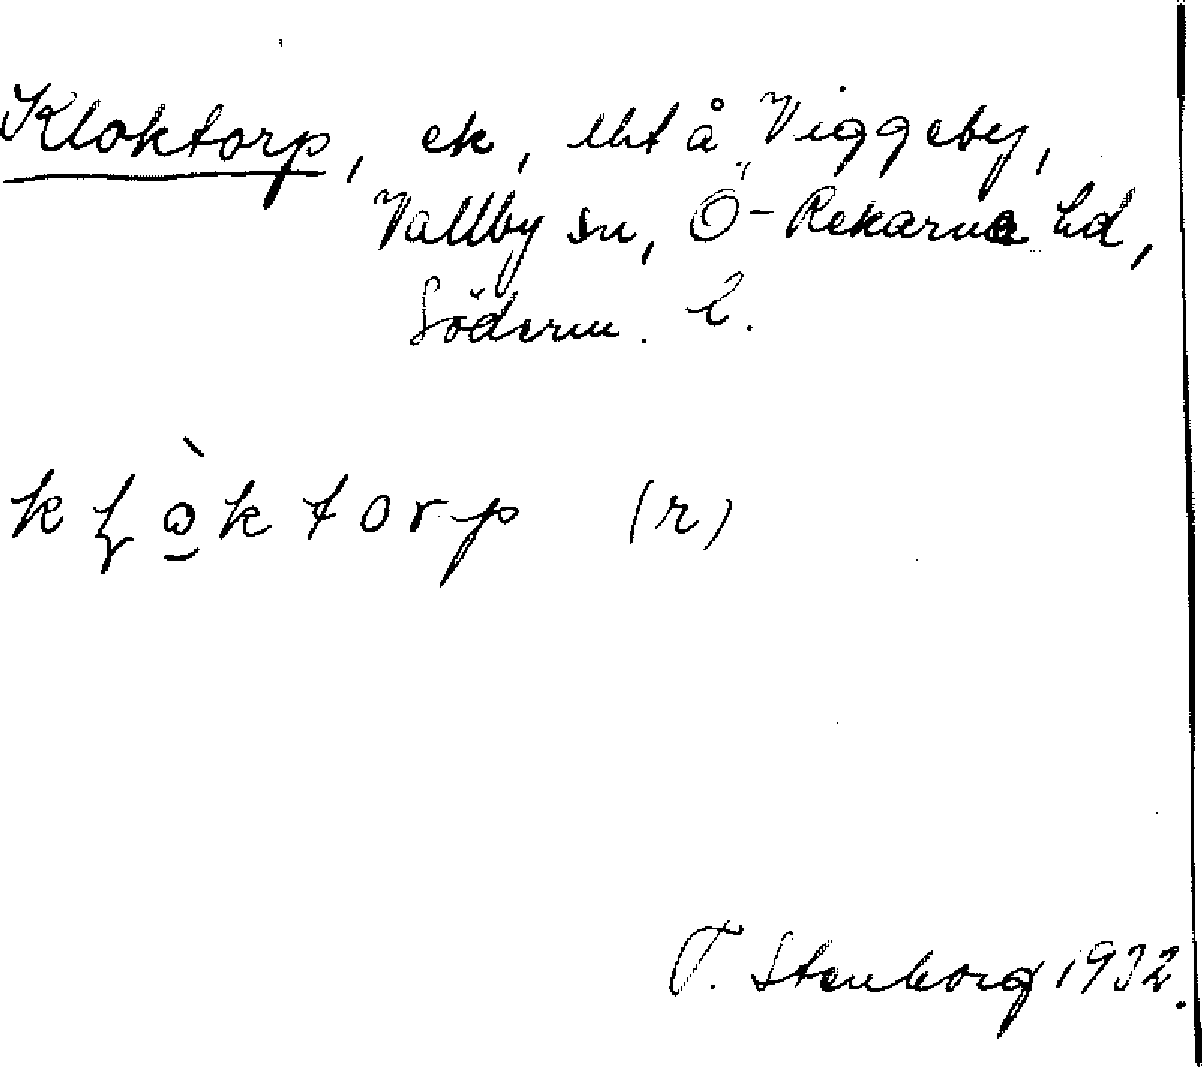 Kloktorp, ek, lht å Viggeby,
Vallby sn, Ö-Rekarne hd,
Söderm. l.
kɽò̠ktorp (r)
T. Stenborg 1932.